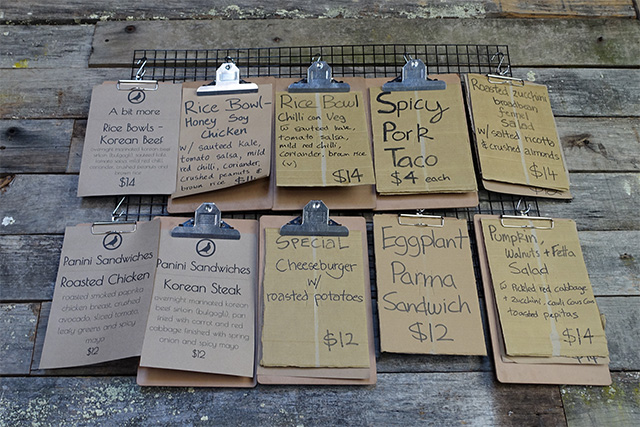 A bit more
Rice Bowls -
Korean Beef
overnight marinated korean
$14
Rice Bowl-
Honey Soy
Chicken
w/ sauteed kale,
tomato salsa, mild
red chilli, coriander,
crushed peanuts &
brown rice
Rice Bowl
Chilli con Veg
w sauteed kale,
tomato salsa,
mild red chilli,
coriander, brown rice
(v)
$14
Spicy
Pork
Taco
$4 each
Roasted zucchini
broadbean
fennel
salad
w/ salted ricotta
& crushed almonds
$14
Panini Sandwiches
Roasted Chicken
roasted smoked paprika
chicken breast, crushed
avocado, sliced tomato,
leafy greens and spicy
mayo
$12
Panini Sandwiches
Korean Steak
overnight marinated korean
beef sirloin (bulgogi), pan
fried with carrot and red
cabbage finished with spring
onion and spicy mayo
$12
SPECIAL
Cheeseburger
w/
roasted potatoes
$12
Eggplant
Parma
Sandwich
$12
Pumpkin
Walnuts + Fetta
Salad
Pickled red cabbage
+ zucchini,
toasted pepitas
$14
$14